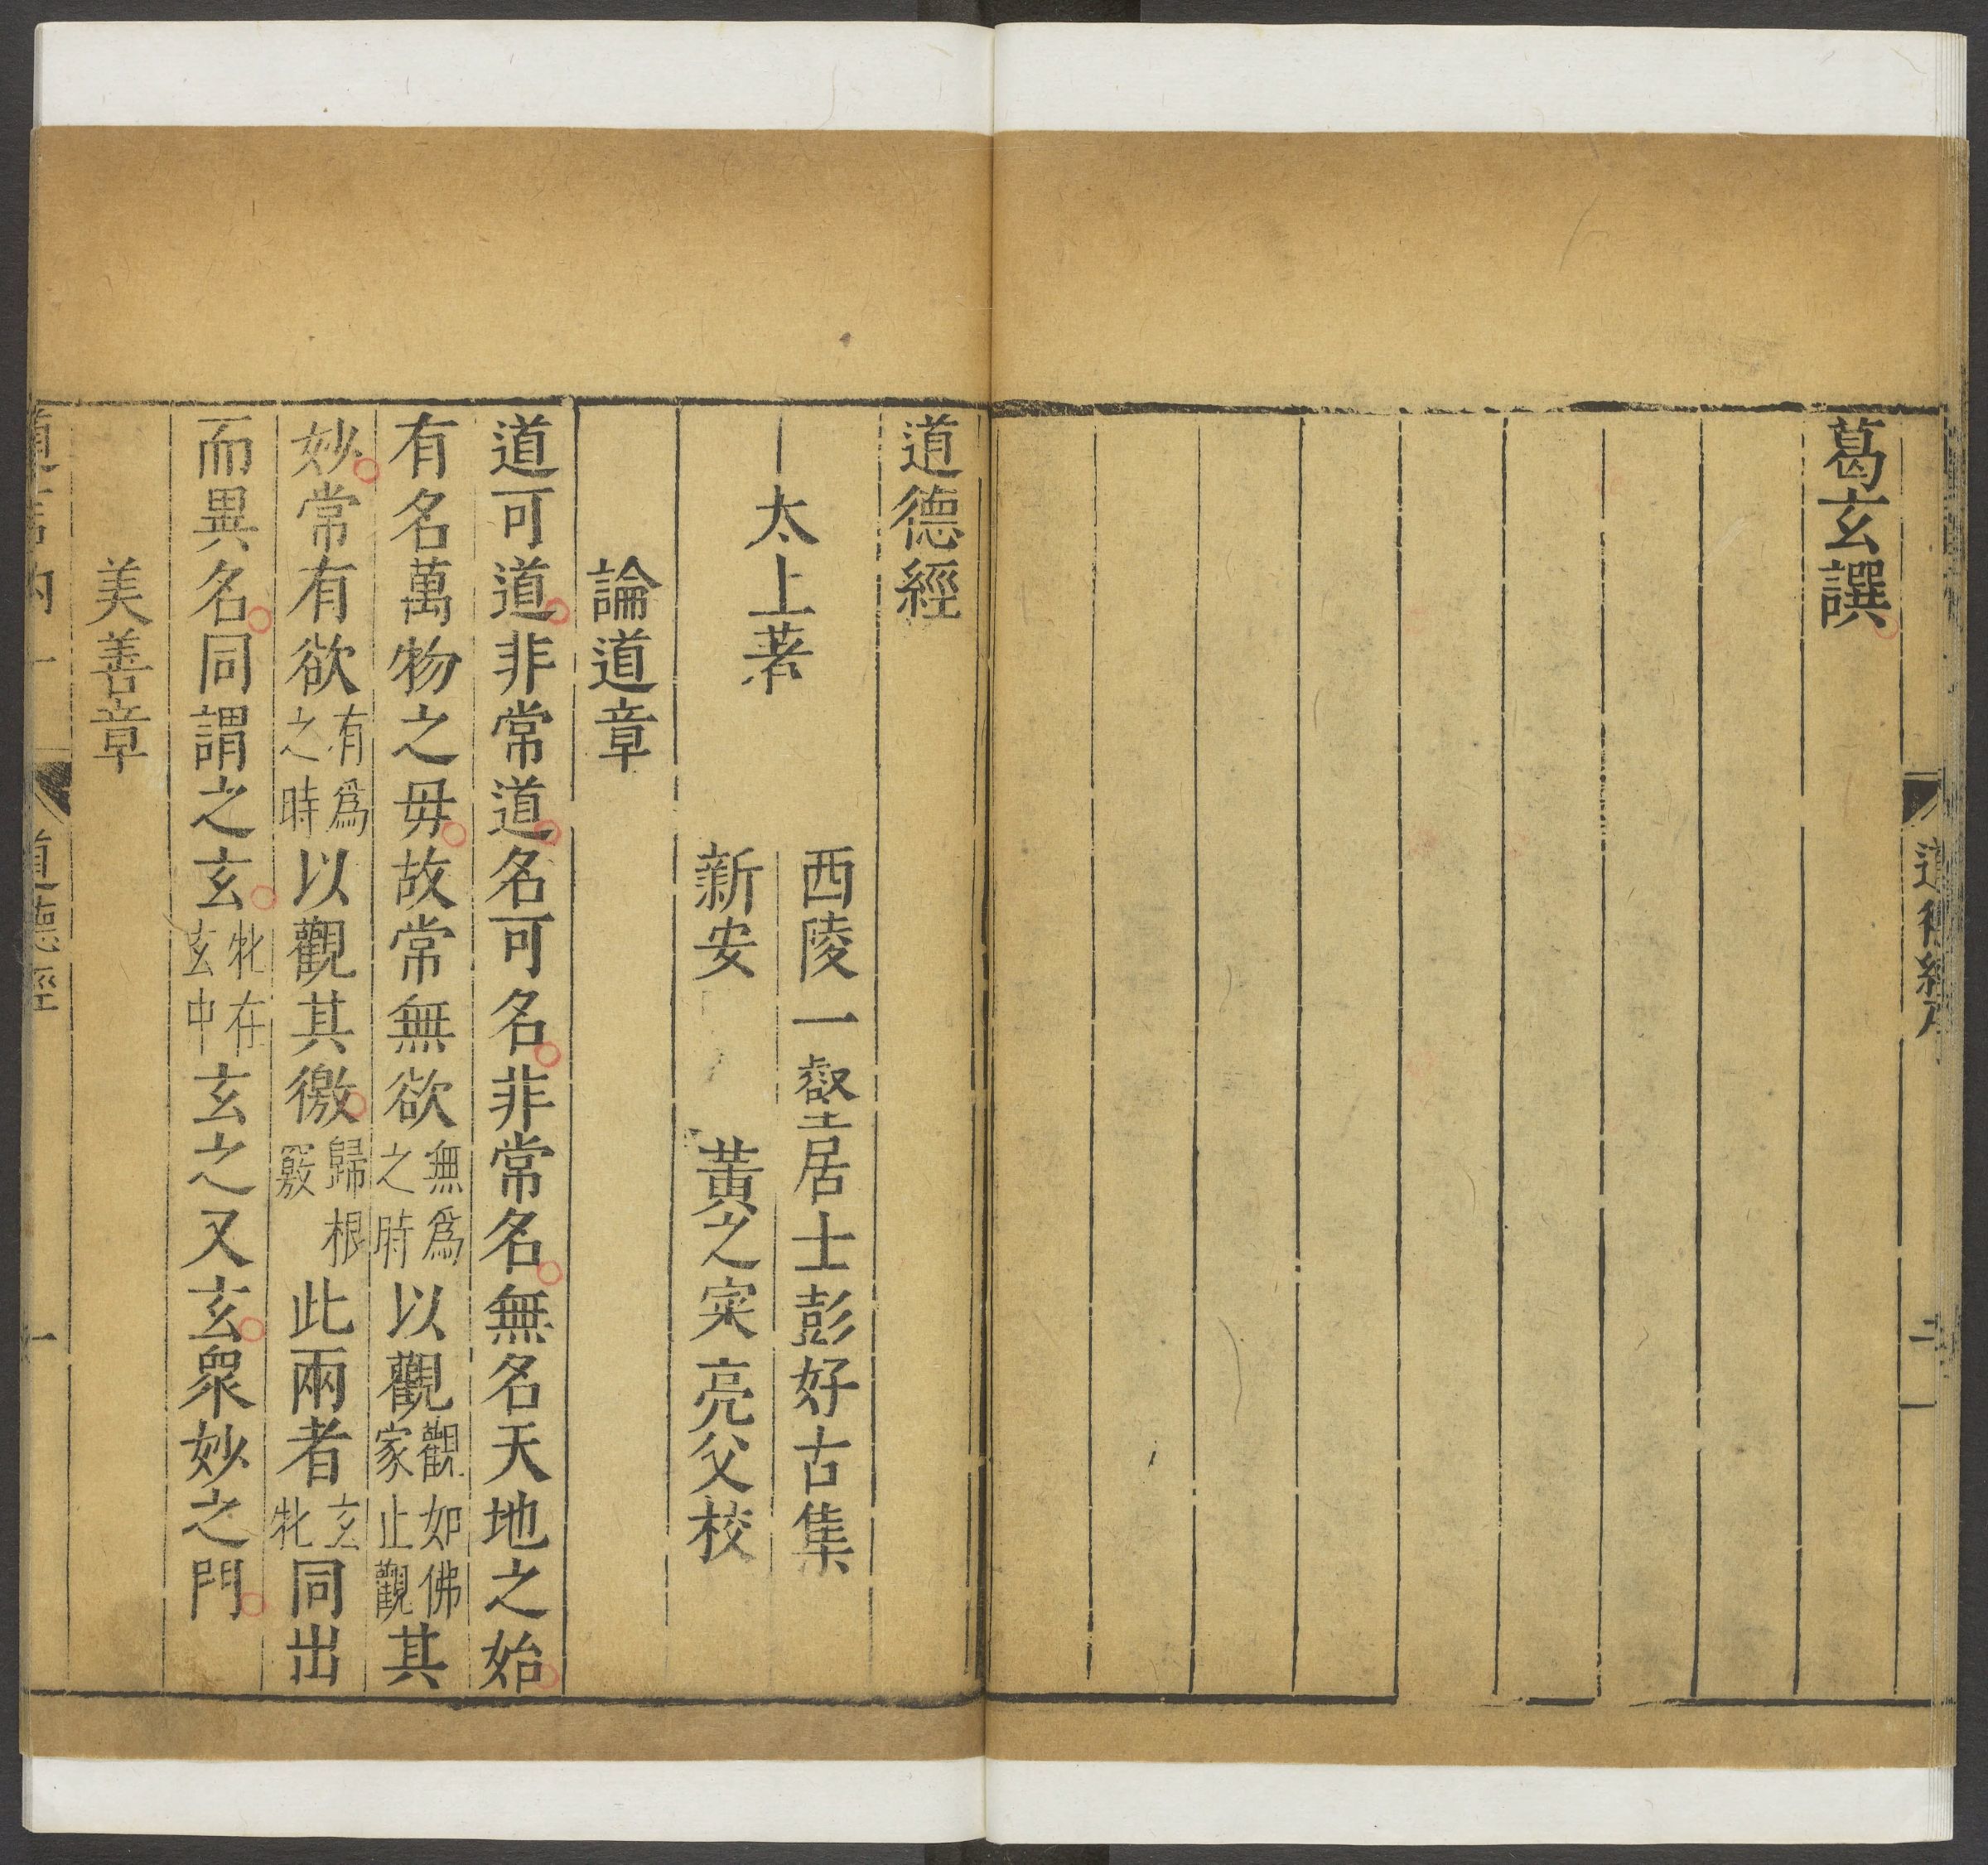 葛玄譔
道德經
太上著
西陵一壑居士彭好古集
新安 黃之寀亮父校
論道章
道可道非常道名可名非常名無名天地之始
有名萬物之毋故常無欲無爲之時以觀觀如佛家止觀其
妙常有欲有爲之時以觀其徼歸根竅此兩者玄牝同出
而異名同謂之玄牝在玄中玄之又玄眾妙之門
美善章
道德經
一